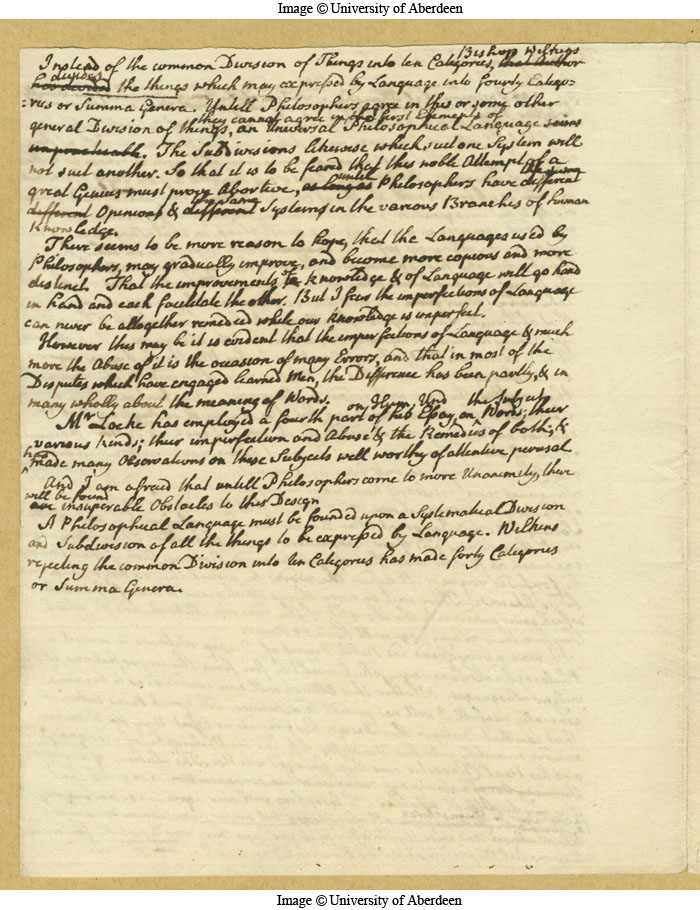 Image © University of Aberdeen
Bishop Wilkins
Instead of the common Division of Things into ten Categories, that Author
divides
has devided the things which may expressed by Language into fourty Catego=
=ries or Summa Genera. Untill Philosophers agree in this or some other
they cannot agree in the first Elements of
general Division of things, an Universal Philosophical Language seems
unpracticable. The Subdivisions likewise which suit one System will
not suit another. So that it is to be feared that this noble Attempt of a
untill the same
great Genius must prove Abortive, as long as Philosophers have different
the same
different Opinions & different Systems in the various Branches of human
Knowledge.
There seems to be more reason to hope, that the Languages used by
Philosophers, may gradually improve, and become more copious and more
distinct. That the improvements of knowledge & of Language will go hand
in hand and each facilitate the other. But I fear the imperfections of Language
can never be altogether remedied while our knowledge is imperfect.
However this may be it is evident that the imperfections of Language & much
more the Abuse of it is the occasion of many Errors, and that in most of the
Disputes which have engaged learned Men, the Difference has been partly, & in
many wholly about the meaning of Words.
on Hum. Und the Subject
Mr Locke has employed a fourth part of his Essay, on Words; their
various kinds; their imperfection and Abuse & the Remedies of both, &
has
made many Observations on these Subjects well worthy of attentive perusal
And I am afreid that untill Philosophers come to more Unanimity, there
will be found
are insuperable Obstacles to this Design
A Philosophical Language must be founded upon a Systematical Division
and Subdivision of all the things to be expressed by Language. Wilkins
rejecting the common Division into ten Categories has made forty Categories
or Summa Genera.
Image © University of Aberdeen